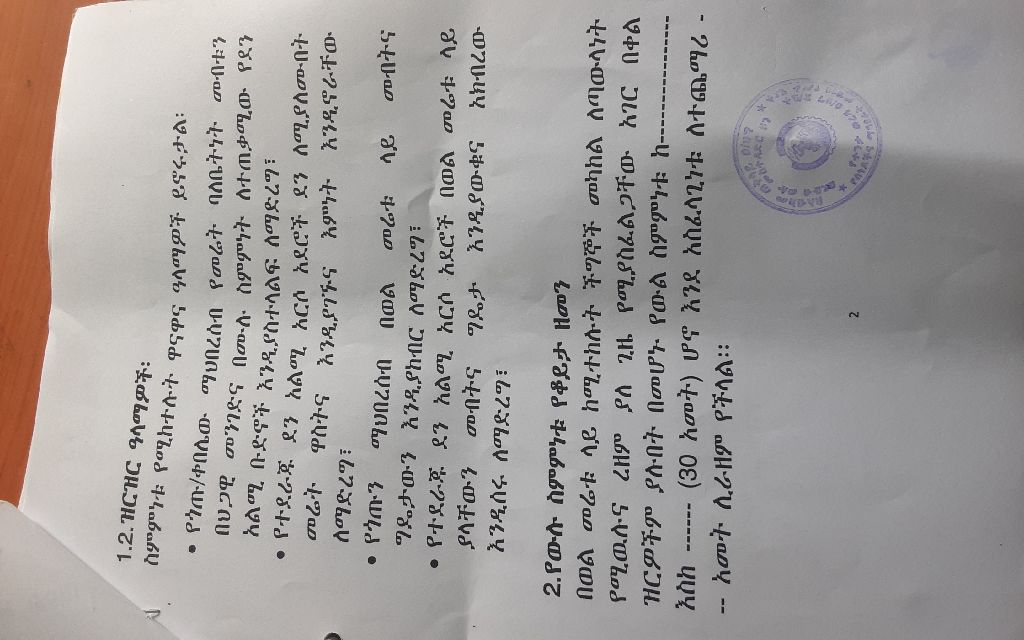 1.2. ዝርዝር ዓላማዎች፡
ስምምነቱ የሚከተሉት ቀናቀና ዓላማዎች ይኖሩታል፡
• የጎጡ/ቀበሌው ማህበረሰብ የመሬት ባለቤትነት መብቱን
በህጋዊ መንገድና በሙሉ ስምምነት ለተጠቃሚው የደን
አልሚ ቡድኖች እንዲያስተላልፍ ለማድረግ፤
• የተደራጁ ደን አልሚ አርሶ አደሮች ደን ለሚያለሙበት
መሬት ዋስትና እንዲያገኙና እምነት እንዲኖራቸው
ለማድረግ፤
• የጎጡን ማህበረሰብ በወል መሬቱ ላይ መብትና
ግዴታውን እንዲያከብር ለማድረግ፤
• የተደራጁ ደን አልሚ አርሶ አደሮች በወል መሬቱ ላይ
ያላቸውን መብትና ግዴታ እንዲያውቁና አክብረው
እንዲሰሩ ለማድረግ፤
2.የውሉ ስምምነቱ የቆይታ ዘመን
በወል መሬቱ ላይ ከሚተከሉት ችግኞች መካከል ለጣውላነት
የሚዉሉና ረዘም ያለ ጊዜ የሚያስፈልጋቸው አገር በቀል
ዝርዎችም ያሉበት በመሆኑ የውል ስምምነቱ ከ----------------
እስከ ------ (30 አመት) ሆኖ እንደ አስፈላጊነቱ ለተጨማሪ -
-- አመት ሊራዘም የችላል፡፡
2